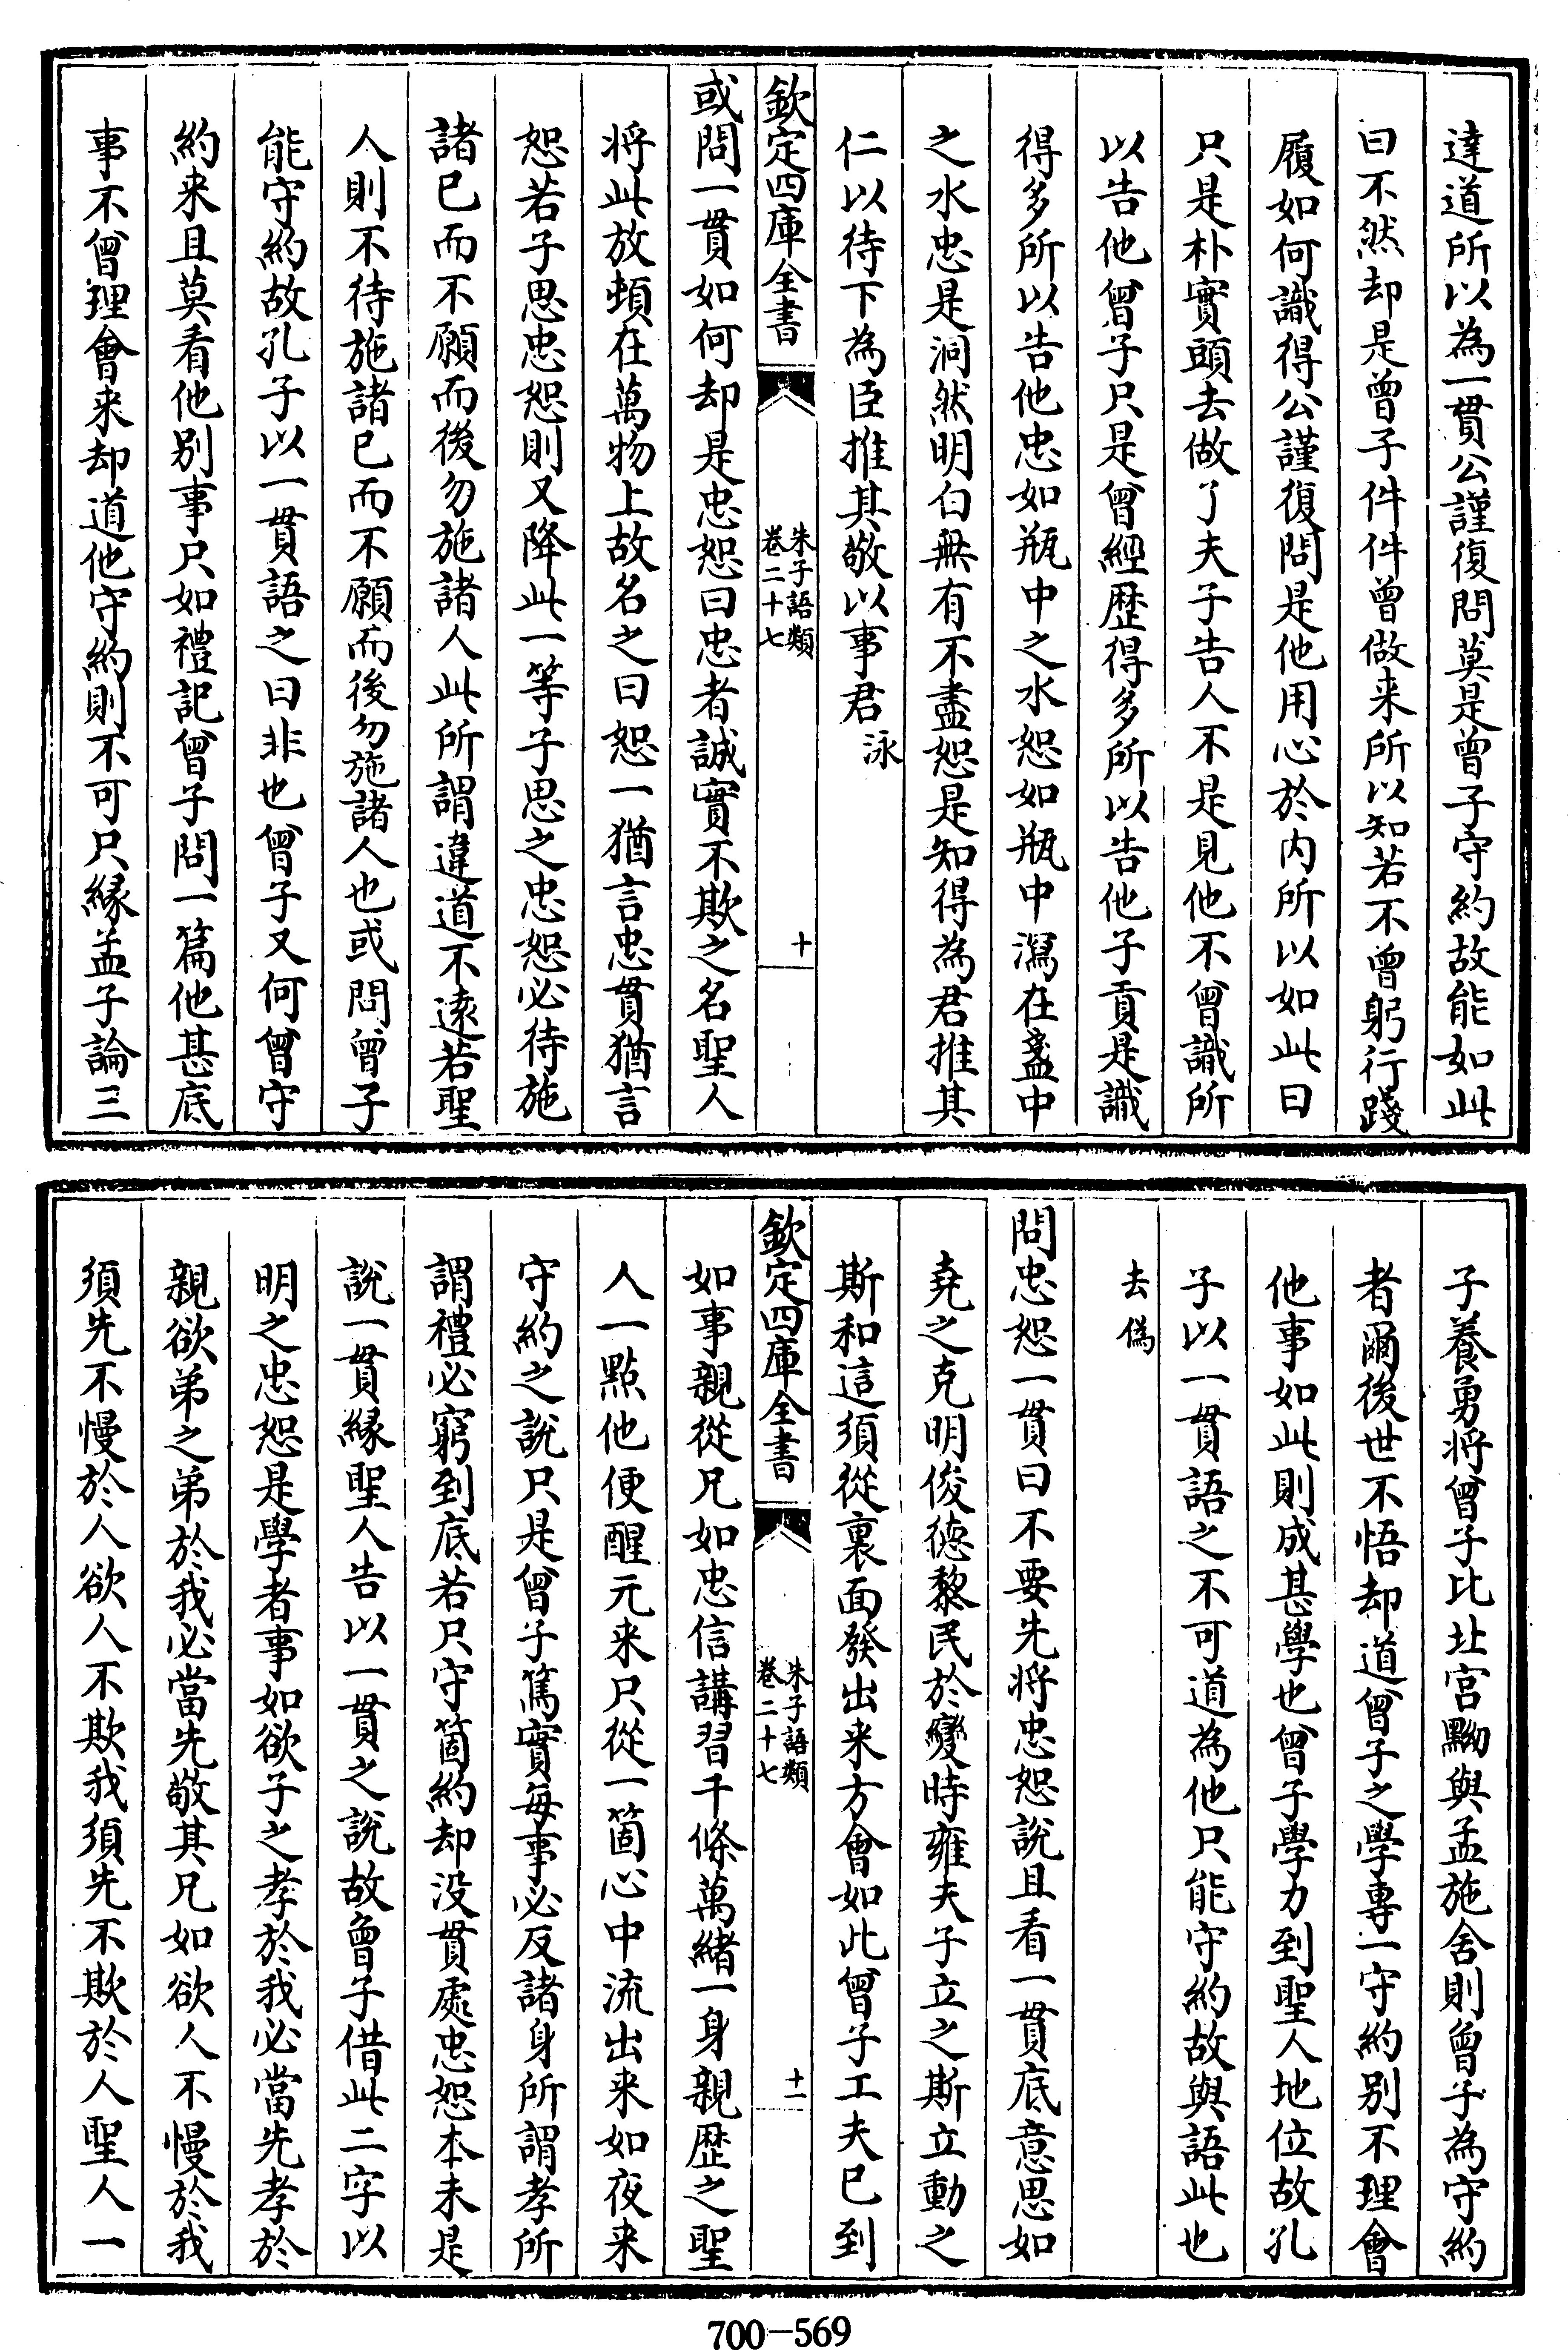 達道所以為一貫公謹復問莫是曾子守約故能如此
曰不然却是曾子件件曾做来所以知若不曾躬行踐
履如何識得公謹復問是他用心於内所以如此曰
只是朴實頭去做了夫子告人不是見他不曾識所
以告他曾子只是曾經歴得多所以告他子貢是識
得多所以告他忠如瓶中之水恕如瓶中瀉在盞中
之水忠是洞然明白無有不盡恕是知得為君推其
仁以待下為臣推其敬以事君泳
欽定四庫全書
朱子語類
卷二十七
十
或問一貫如何却是忠恕曰忠者誠實不欺之名聖人
将此放頓在萬物上故名之曰恕一猶言忠貫猶言
恕若子思忠恕則又降此一等子思之忠恕必待施
諸已而不願而後勿施諸人此所謂違道不逺若聖
人則不待施諸已而不願而後勿施諸人也或問曾子
能守約故孔子以一貫語之曰非也曾子又何曾守
約来且莫看他别事只如禮記曾子問一篇他甚底
事不曾理會来却道他守約則不可只縁孟子論三
子養勇将曾子比北宫黝與孟施舍則曾子為守約
者爾後世不悟却道曾子之學專一守約别不理會
他事如此則成甚學也曾子學力到聖人地位故孔
子以一貫語之不可道為他只能守約故與語此也
去偽
問忠恕一貫曰不要先将忠恕說且看一貫底意思如
堯之克明俊徳黎民於變時雍夫子立之斯立動之
斯和這須從裏面發出来方會如此曾子工夫已到
欽定四庫全書
朱子語類
卷二十七
十一
如事親從兄如忠信講習千條萬緒一身親歴之聖
人一點他便醒元来只從一箇心中流出来如夜来
守約之說只是曾子篤實每事必反諸身所謂孝所
謂禮必窮到底若只守箇約却没貫處忠恕本未是
說一貫縁聖人告以一貫之說故曾子借此二字以
明之忠恕是學者事如欲子之孝於我必當先孝於
親欲弟之弟於我必當先敬其兄如欲人不慢於我
須先不慢於人欲人不欺我須先不欺於人聖人一
700-569